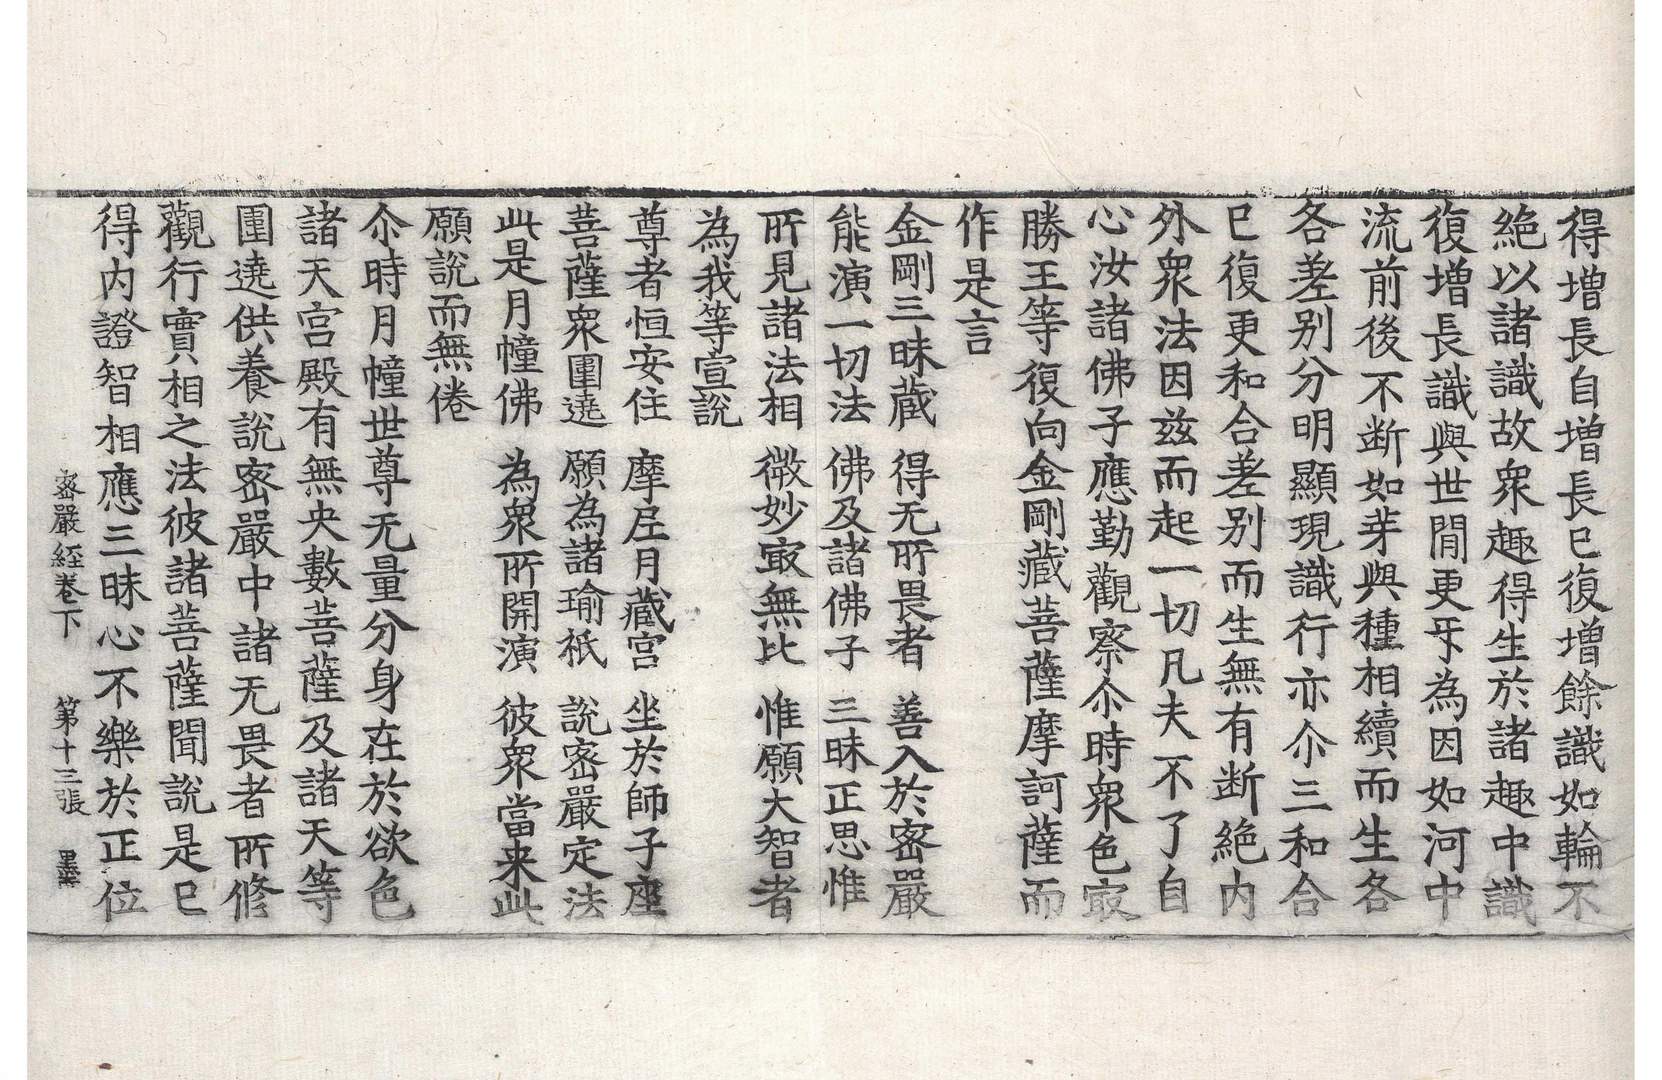 得增長自增長已復增餘識如輪不
絶以諸識故衆趣得生於諸趣中識
復增長識與世間更㸦為因如河中
流前後不断如芽與種相續而生各
各差别分明顯現識行亦尒三和合
已復更和合差别而生無有断絶内
外衆法因兹而起一切凡夫不了自
心汝諸佛子應勤觀察尒時衆色㝡
勝王等復向金剛藏菩薩摩訶薩而
作是言
金剛三昧藏　得无所畏者　善入於密嚴
能演一切法　佛及諸佛子　三昧正思惟
所見諸法相　微妙㝡無比　惟願大智者
為我等宣說
尊者恒安住　摩𡰱月藏宮　坐於師子座
菩薩衆圍遶　願為諸瑜祇　說密嚴定法
此是月幢佛　為衆所開演　彼衆當来此
願說而無倦
尒時月幢世尊无量分身在於欲色
諸天宮殿有無央數菩薩及諸天等
圍遶供養說密嚴中諸无畏者所修
觀行實相之法彼諸菩薩聞說是已
得内證智相應三昧心不樂於正位
密嚴経卷下　第十三張　墨